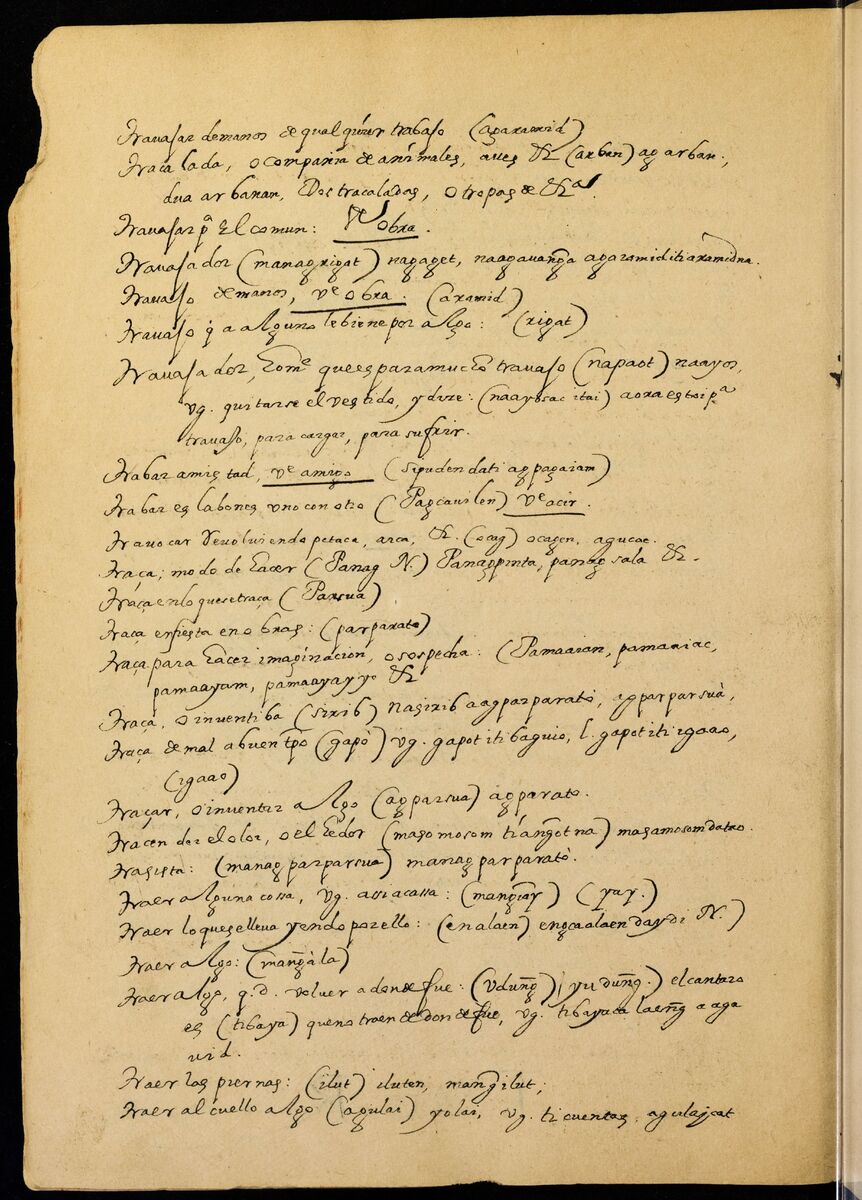 travajar de manos de qual quier trabajo (agaramid)
traca lada, o compañia de animales, aves &c (arban) ag arban;
dua ar banan, Dos tracaladas, o tropas de &a.
travajar pa el comun: Ve obra.
travajador (managrigat) nagaget, naagavanga agaramiditi aramidna.
travajo de manos, ve obra. (aramid)
travajo q̃ a alguno le biene por algo: (rigat)
travajador, home que es para mucho travajo (napaot) naayos,
vg. quitarse el vestido, y dize: (naayosac itai) aora estoi pa
travajo, para cargar, para sufrir.
trabar amistad, ve amigo (sipuden dati agpagaiam)
trabar eslabones uno con otro (Pagcavilen) ve acir.
travocar revolviendo petaca, arca, &. (ocag) ocagen, agucag.
traça; modo de hacer (Panag N.) Panagpinta, panag sala &.
traça en lo que se traça (Parsua)
traça en fiesta en obras: (parparato)
traça para hacer imaginacion, o sospecha: (Pamaaian, pamaaiac,
pamaayam, pamaayayyo &
traça, o inventiba (sirib) nasirib a agparparato, agparparsuà,
traça de mal a buen tp̃o (gapò) vg. gapot iti baguio, l. gapot iti igaao,
(igaao)
traçar, o inventir algo (agparsua) agparato.
tracender el olor, o el hedor (masomosom ti angot na) masamosom datao.
trasista: (managparparsua) managparparatò.
traer alguna cossa, vg. assi a cassa: (mangiay) (yay.)
traer lo que se lleva yendo por ello: (en alaen) engca alaen daydi N.)
traer algo: (mangàla)
traer algo, q. d. volver a donde fue: (Vdung) (yudung.) el cantaro
es (tibaya) que no traen de donde fue, vg. tibayaca laeng a aga
uid.
traer las piernas: (ilut) iluten, mangilut;
traer al cuello algo (agulai) yolai, vg. ti cuentas, agulaicat